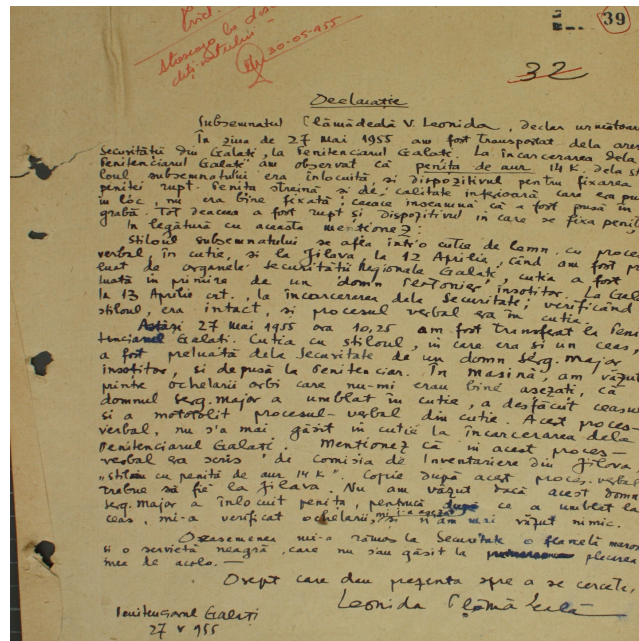 39
30-05-955
32
Declarație
Subsemnatul Clămădeală V. Leonida, declar următoar
În ziua de 27 Mai 1955 am fost transportat dela are
Securității din Galați, la Penitenciarul Galați. La încarcerarea dela
Penitenciarul Galați am observat că penița de aur 14 K. dela st
loul subsemnatului era înlocuită și dispozitivul pentru fixarea
peniței rupt. Penița streină și de calitate inferioară care era pu
în loc, nu era bine fixată; ceeace înseamnă că a fost pusă în
grabă. Tot deaceea a fost rupt și dispozitivul în care se fixa peniț
În legătură cu aceasta menționez:
Stiloul subsemnatului se afla într'o cutie de lemn, cu proces
verbal în cutie, și la Jilava la 12 Aprilie, când am fost pr
luat de organele Securității Regionale Galați, cutia a fost
luată în primire de un domn Plotonier însoțitor. La Gala
la 13 Aprilie crt., la încarcerarea dela Securitate, verificând
stiloul, era intact, și procesul verbal era în cutie.
Astăzi 27 Mai 1955 ora 10,25 am fost transferat la Peni
tenciarul Galați. Cutia cu stiloul, în care era și un ceas,
a fost preluată dela Securitate de un domn Serg. major
însoțitor, și depusă la Penitenciar. În mașină, am văzut
printre ochelarii orbi care nu-mi erau bine așezați, că
domnul serg. major a umblat în cutie, a desfăcut ceasu
și a mototolit procesul-verbal din cutie. Acest proces-
verbal, nu s'a mai găsit în cutie la încarcerarea dela
Penitenciarul Galați. Menționez că în acest proces-
verbal era scris de Comisia de Inventariere din Jilava
"stilou cu peniță de aur 14 K". Copie după acest proces-verbal
trebue să fie la Jilava. Nu am văzut dacă acest domn
Serg. major a înlocuit penița, pentrucă după ce a umblat la
ceas, mi-a verificat ochelarii, mi i-a așezat și n'am mai văzut nimic.
Deasemenea mi-a rămas la Securitate o flanelă maro
și o servietă neagră, care nu s'au găsit la plecarea
mea de acolo.—
Drept care dau prezenta spre a se cerceta.
Leonida Clămădeală
Penitenciarul Galați
27 V 955